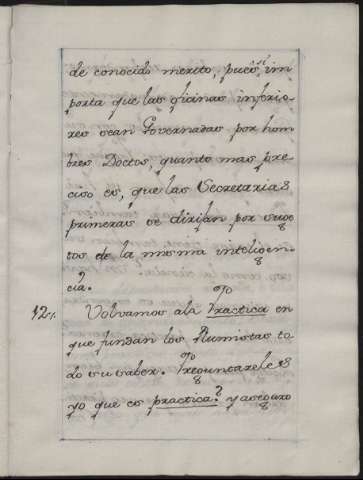 de conocido merito, pues si im
porta que las oficinas inferio
res sean Governadas por hom
bres Doctos, quanto mas pre
ciso es, que las Secretarias
primeras se dirijan por suge
tos de la misma inteligen
cia.
12. Volvamos ala Practica en
que fundan los Plumistas to
do su saber. Preguntareles
yo que es practica? y aseguro